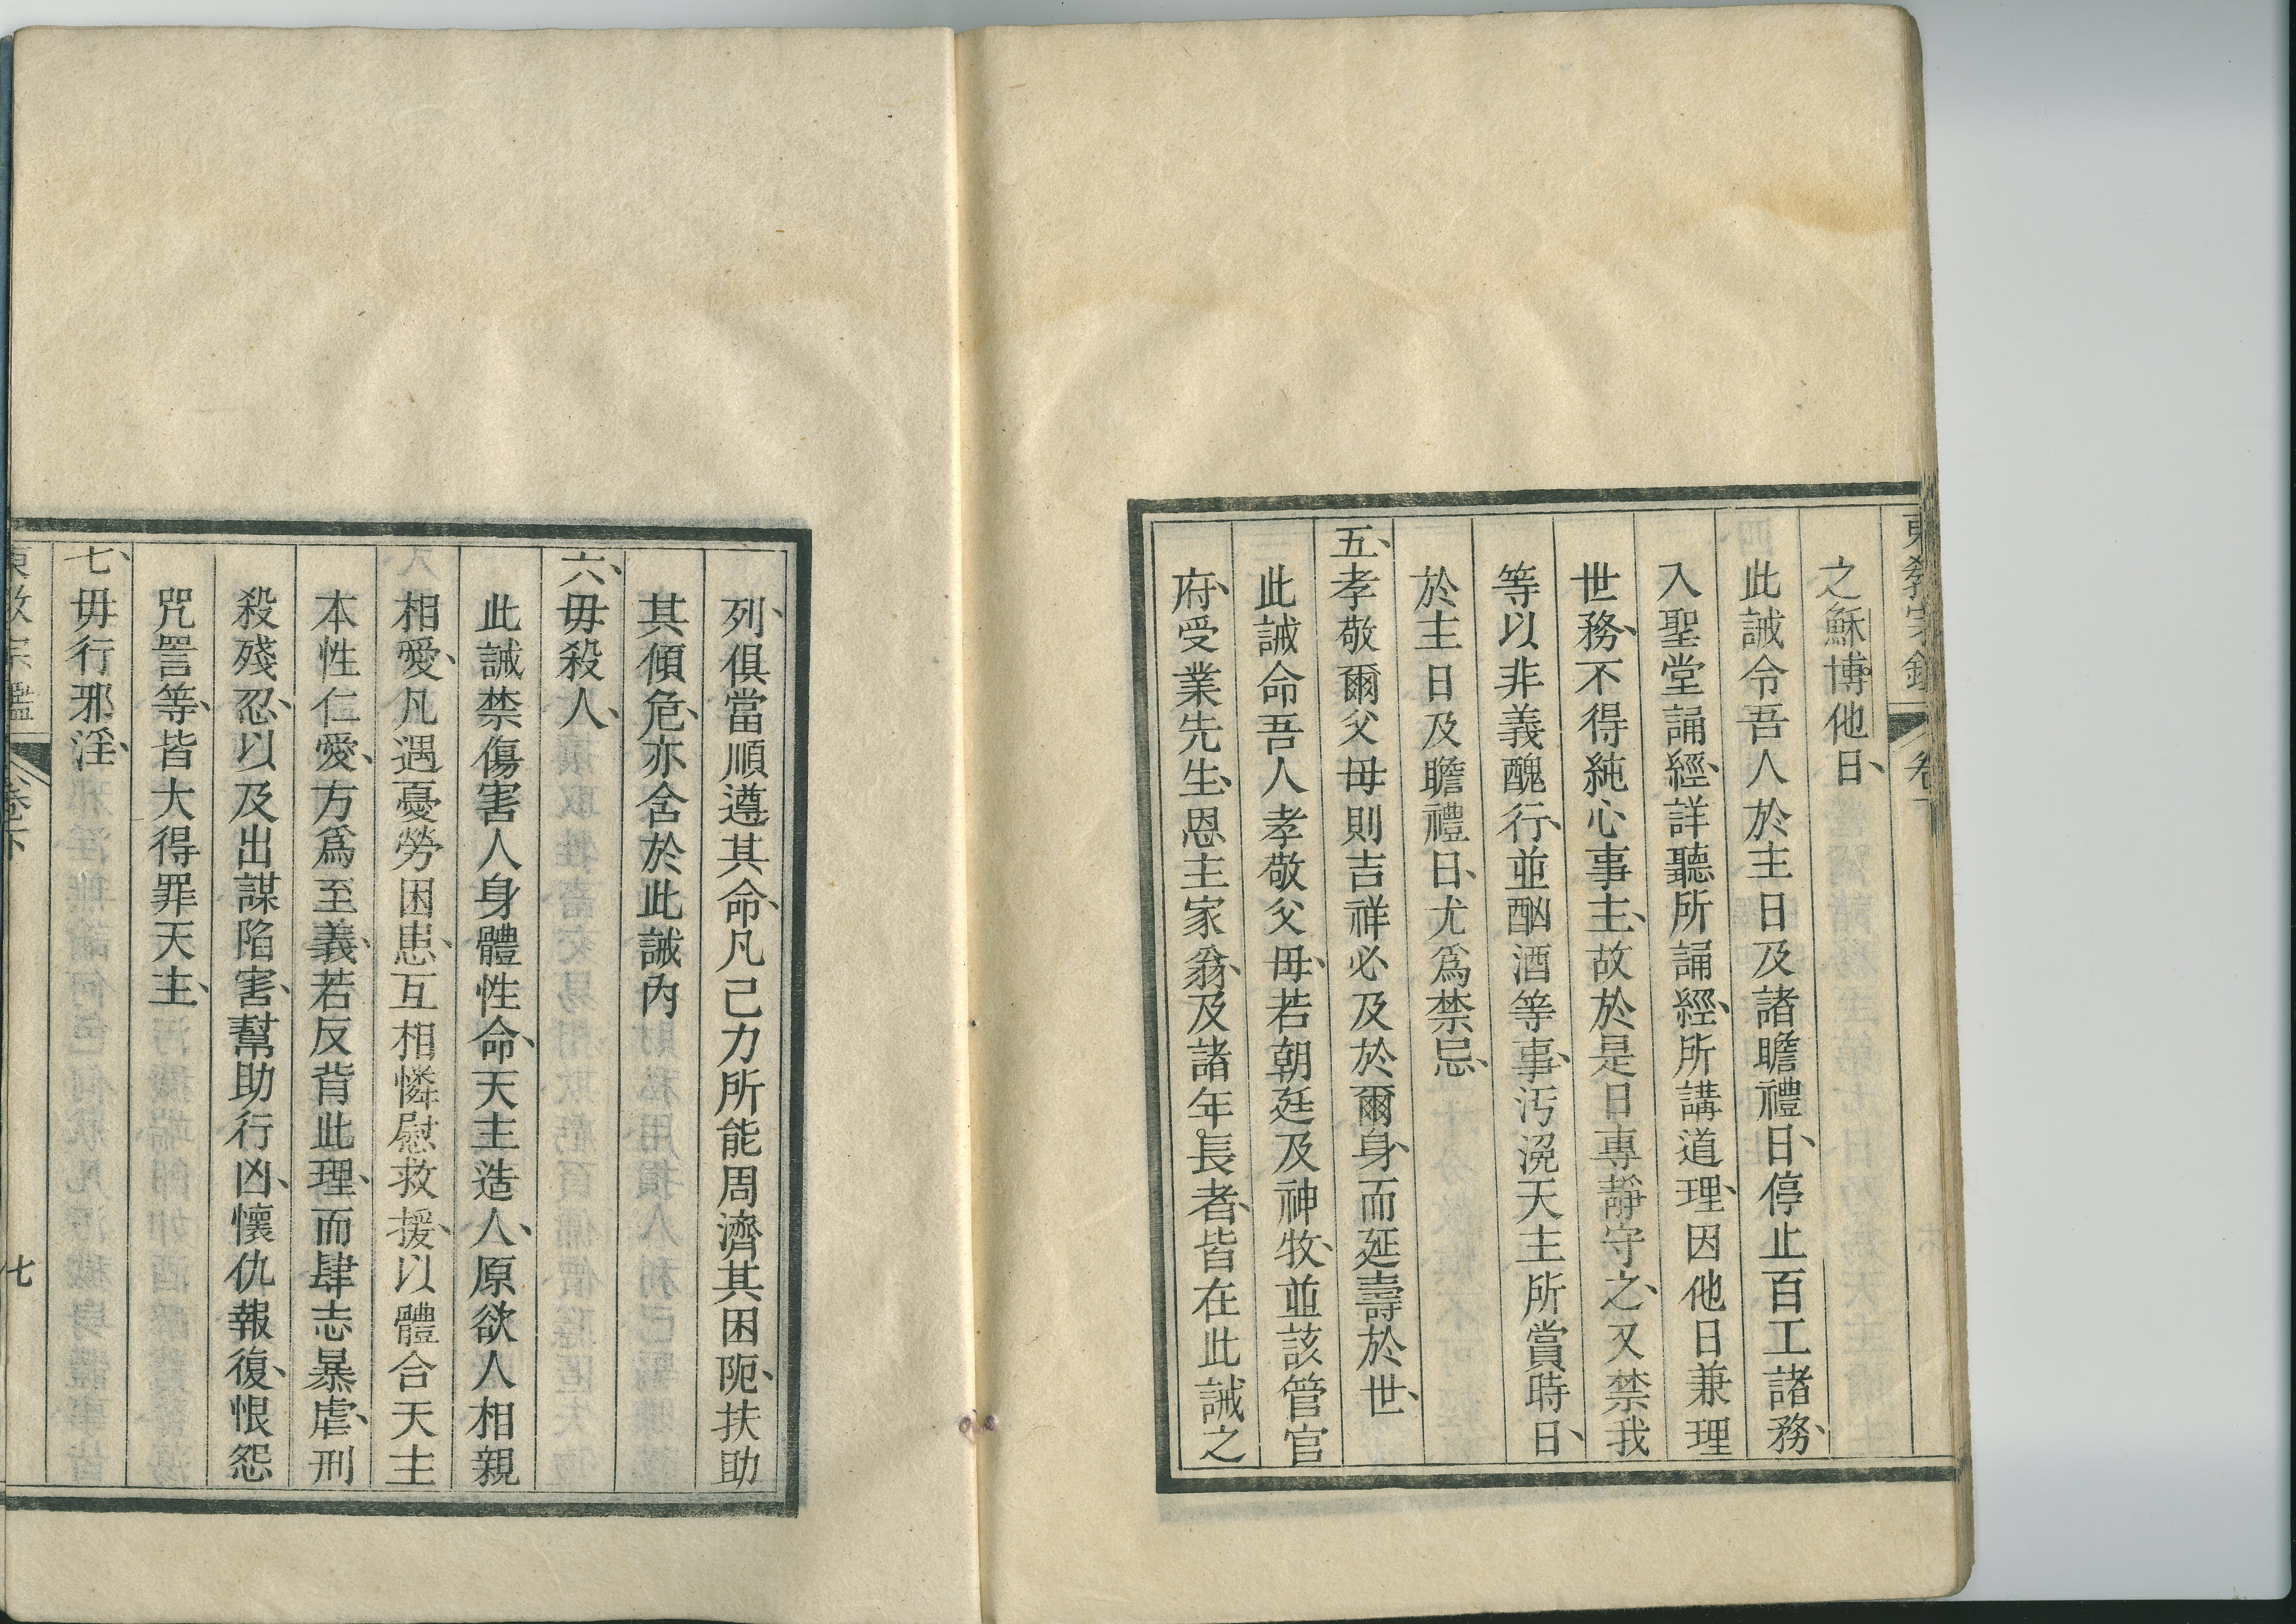 東教宗鑑 卷下
之穌博他日、
此誡令吾人於主日及諸瞻禮日、停止百工諸務、
入聖堂誦經、詳聽所誦經、所講道理、因他日兼理
世務、不得純心事主、故於是日專靜守之、又禁我
等以非義醜行、並酗酒等事、汚涴天主所賞時日、
於主日及瞻禮日、尤爲禁忌、
五、孝敬爾父母則吉祥必及於爾身、而延壽於世、
此誡命吾人孝敬父母、若朝廷及神牧、並該管官
府、受業先生、恩主家翁、及諸年長者、皆在此誡之
列、俱當順遵其命、凡己力所能周濟其困阨、扶助
其傾危、亦含於此誡內
六、毋殺人、
此誡禁傷害人身體性命、天主造人、原欲人相親
相愛、凡遇憂勞困患、互相憐慰救援、以體合天主
本性仁愛、方爲至義、若反背此理、而肆志暴虐、刑
殺殘忍、以及出謀陷害、幫助行凶、懷仇報復、恨怨
咒詈等、皆大得罪天主、
七、毋行邪淫、
東教宗鑑 卷下 七